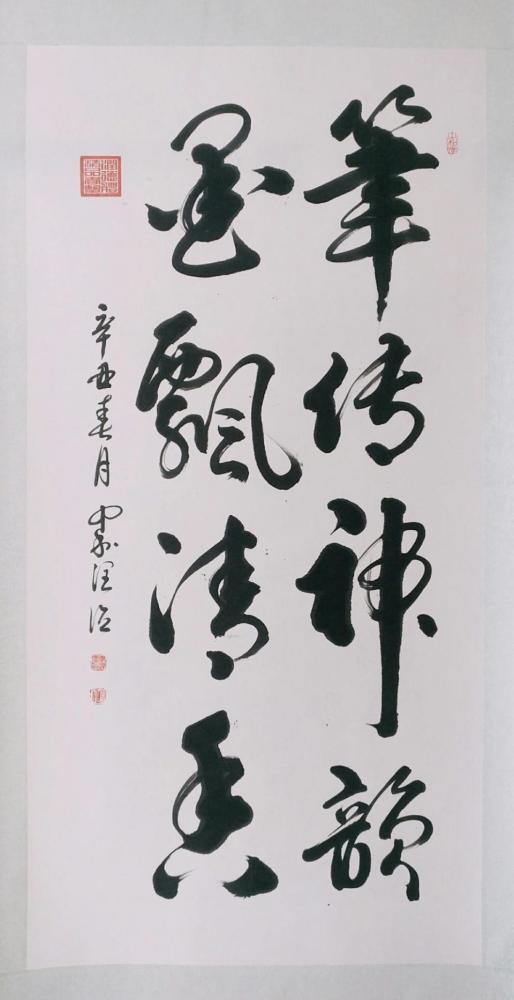 筆传神韻
墨飘清香
辛丑春月